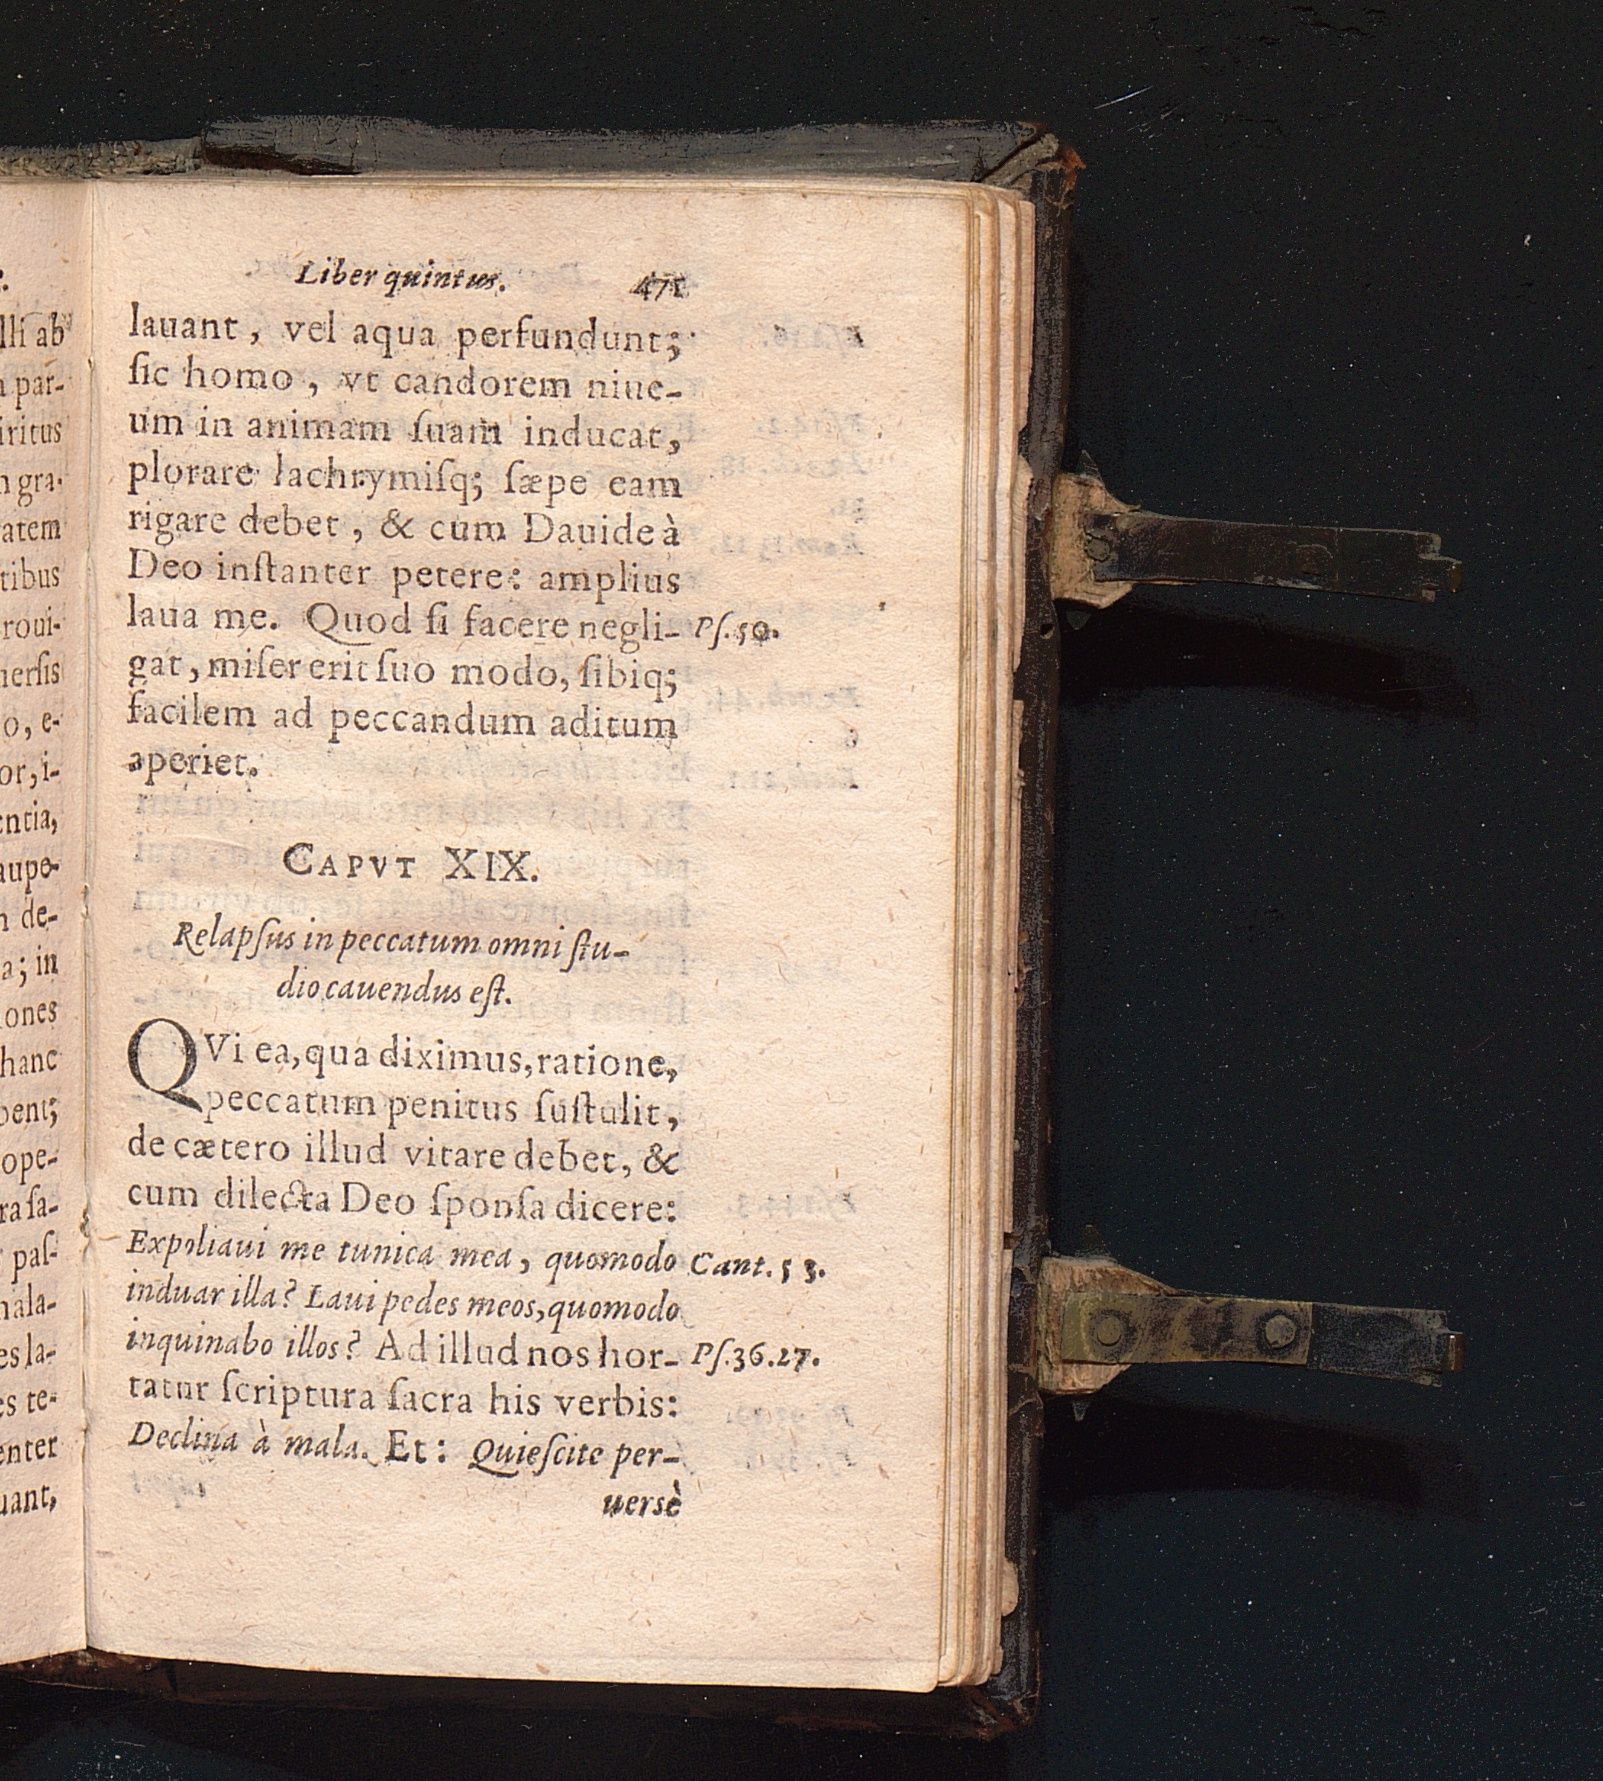 Liber quintus. 471
lauant, vel aqua perfundunt;
ſic homo, vt candorem niue-
um in animam ſuam inducat,
plorare lachrymiſq; ſæpe eam
rigare debet, & cum Dauide à
Deo inſtanter petere: amplius
laua me. Quod ſi facere negli- Pſ.50.
gat, miſer erit ſuo modo, ſibiq;
facilem ad peccandum aditum
aperiet.
CAPVT XIX.
Relapſus in peccatum omni ſtu-
dio cauendus eſt.
QVi ea, qua diximus, ratione,
peccatum penitus ſuſtulit,
de cætero illud vitare debet, &
cum dilecta Deo ſponſa dicere:
Expoliaui me tunica mea, quomodo Cant.5 3.
induar illa? Laui pedes meos, quomodo
inquinabo illos? Ad illud nos hor- Pſ.36.27.
tatur ſcriptura ſacra his verbis:
Declina à mala. Et: Quieſcite per-
uersè
lli ab
par-
iritus
gra-
atem
tibus
roui-
uerſis
o, e-
or, i-
entia,
aupe-
de-
a; in
iones
hanc
bent;
ope-
ra ſa-
paſ-
mala-
es la-
es te-
enter
uant,